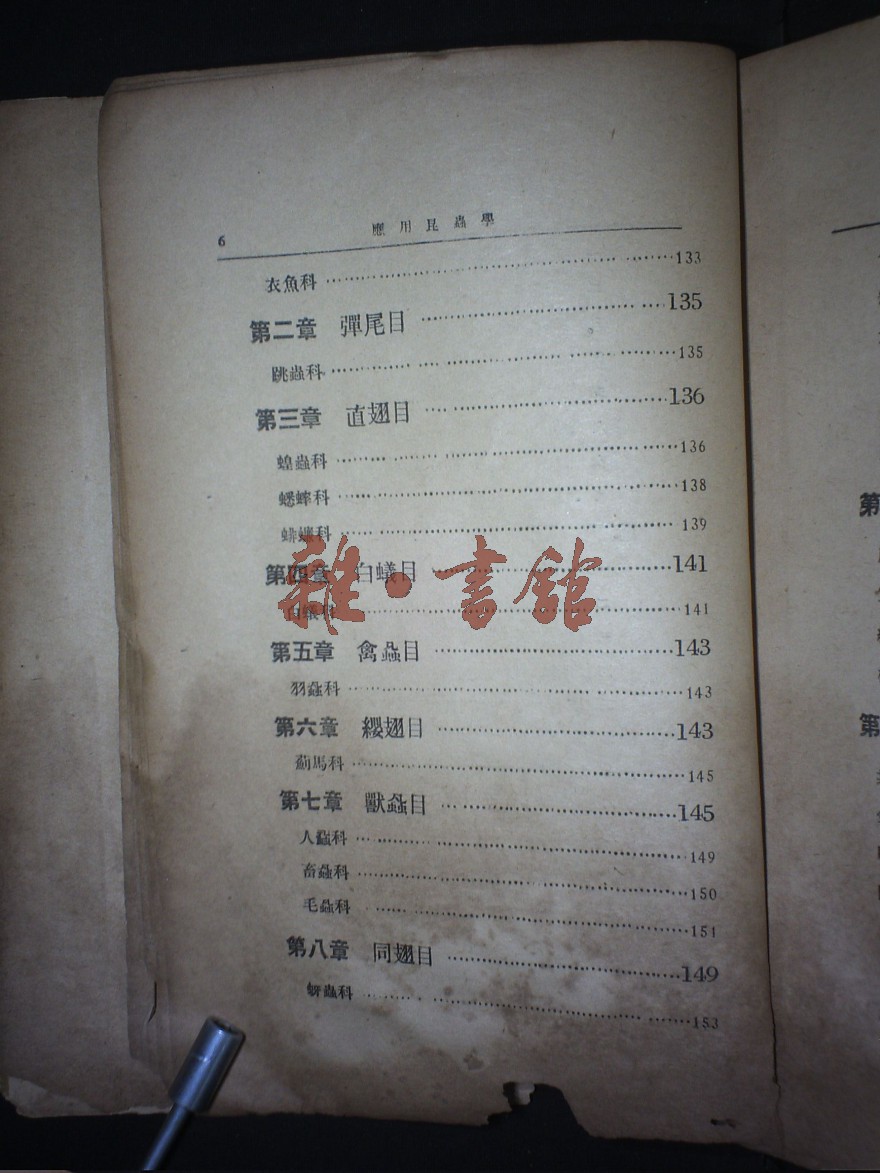 6 應用昆蟲學
衣魚科 133
第二章 彈尾目 135
跳蟲科 135
第三章 直翅目 136
蝗蟲科 136
蟋蟀科 138
蜚蠊科 139
第四章 白蟻目 141
白蟻科 141
第五章 禽蝨目 143
羽蝨科 143
第六章 纓翅目 143
薊馬科 145
第七章 獸蝨目 145
人蝨科 149
畜蝨科 150
毛蝨科 151
第八章 同翅目 149
蚜蟲科 153
雜·書館
第
第